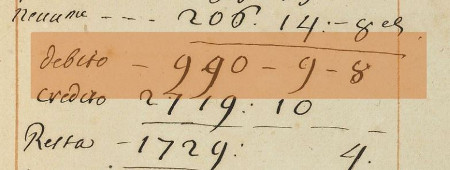 --- 206: 14:-
debito - 990 - 9 - 8
credito 2719: 10 -
Resta - 1729: 4.